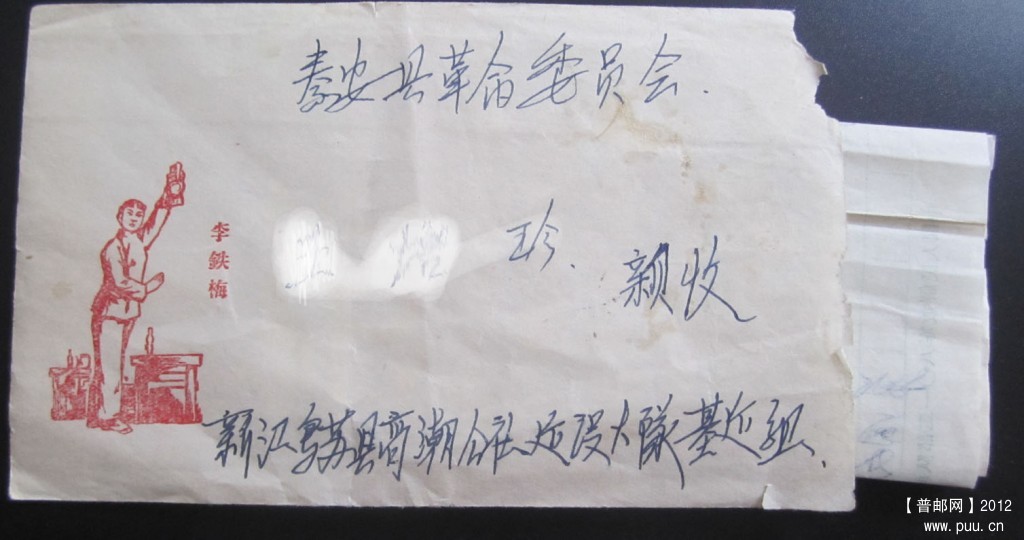 泰安县革命委员会.
李鉄梅
珍.
颖收
新江乌苏县高潮公社近设大队基近组.
【普邮网】2012
www.puu.cn